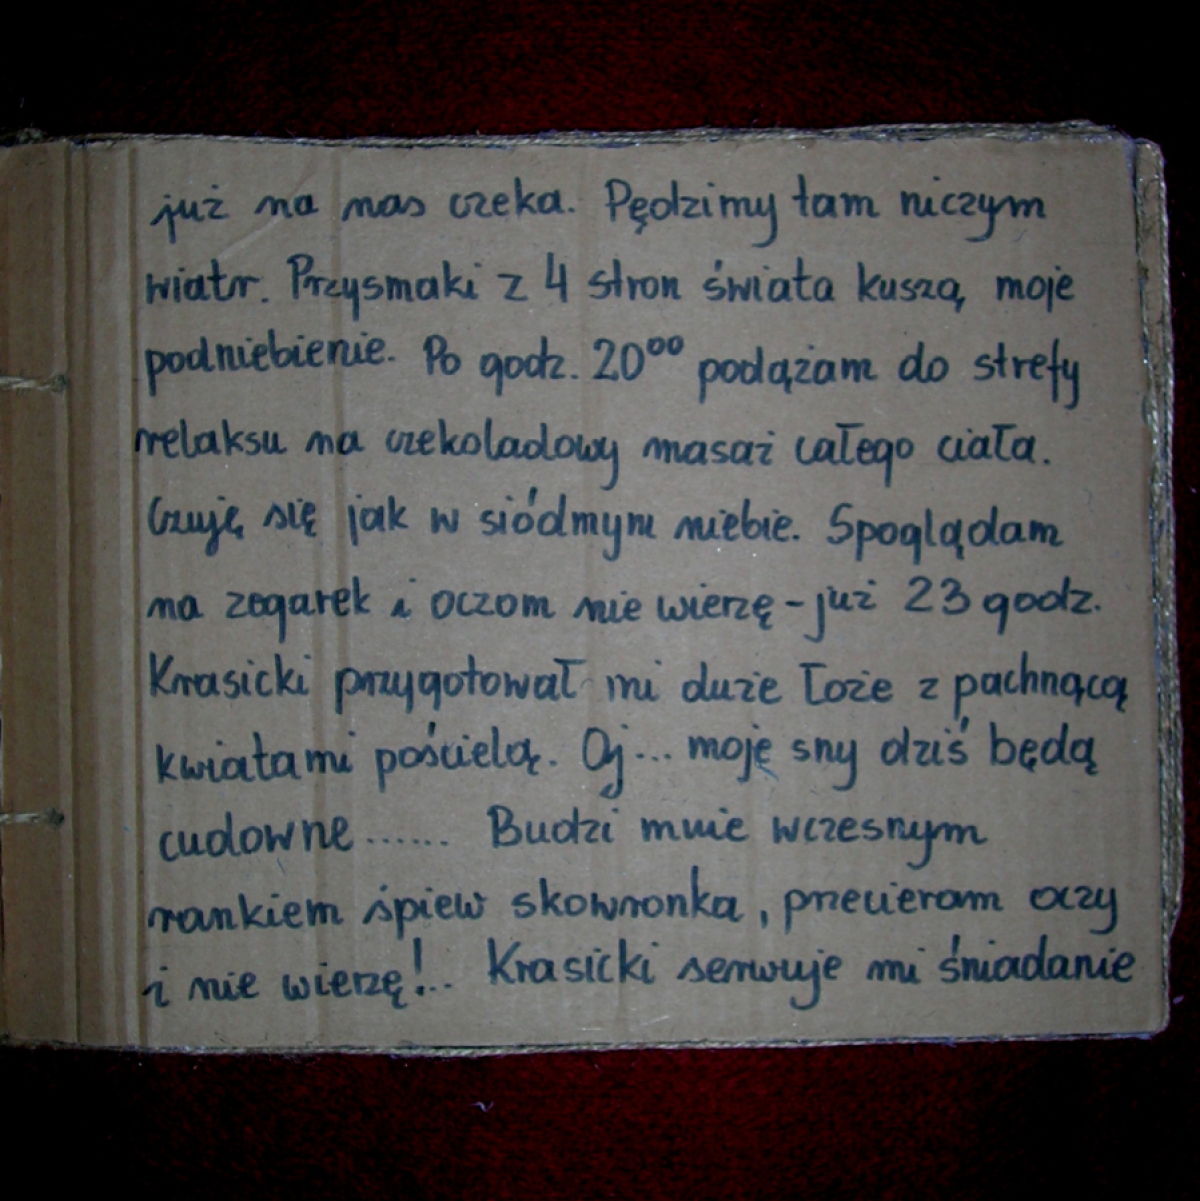 już na nas czeka. Pędzimy tam niczym
wiatr. Przysmaki z 4 stron świata kuszą moje
podniebienie. Po godz. 20⁰⁰ podążam do strefy
relaksu na czekoladowy masaż całego ciała.
Czuję się jak w siódmym niebie. Spoglądam
na zegarek i oczom nie wierzę - już 23 godz.
Krasicki przygotował mi duże łoże z pachnącą
kwiatami pościelą. Oj... moję sny dziś będą
cudowne ...... Budzi mnie wczesnym
rankiem śpiew skowronka, przecieram oczy
i nie wierzę!.. Krasicki serwuje mi śniadanie